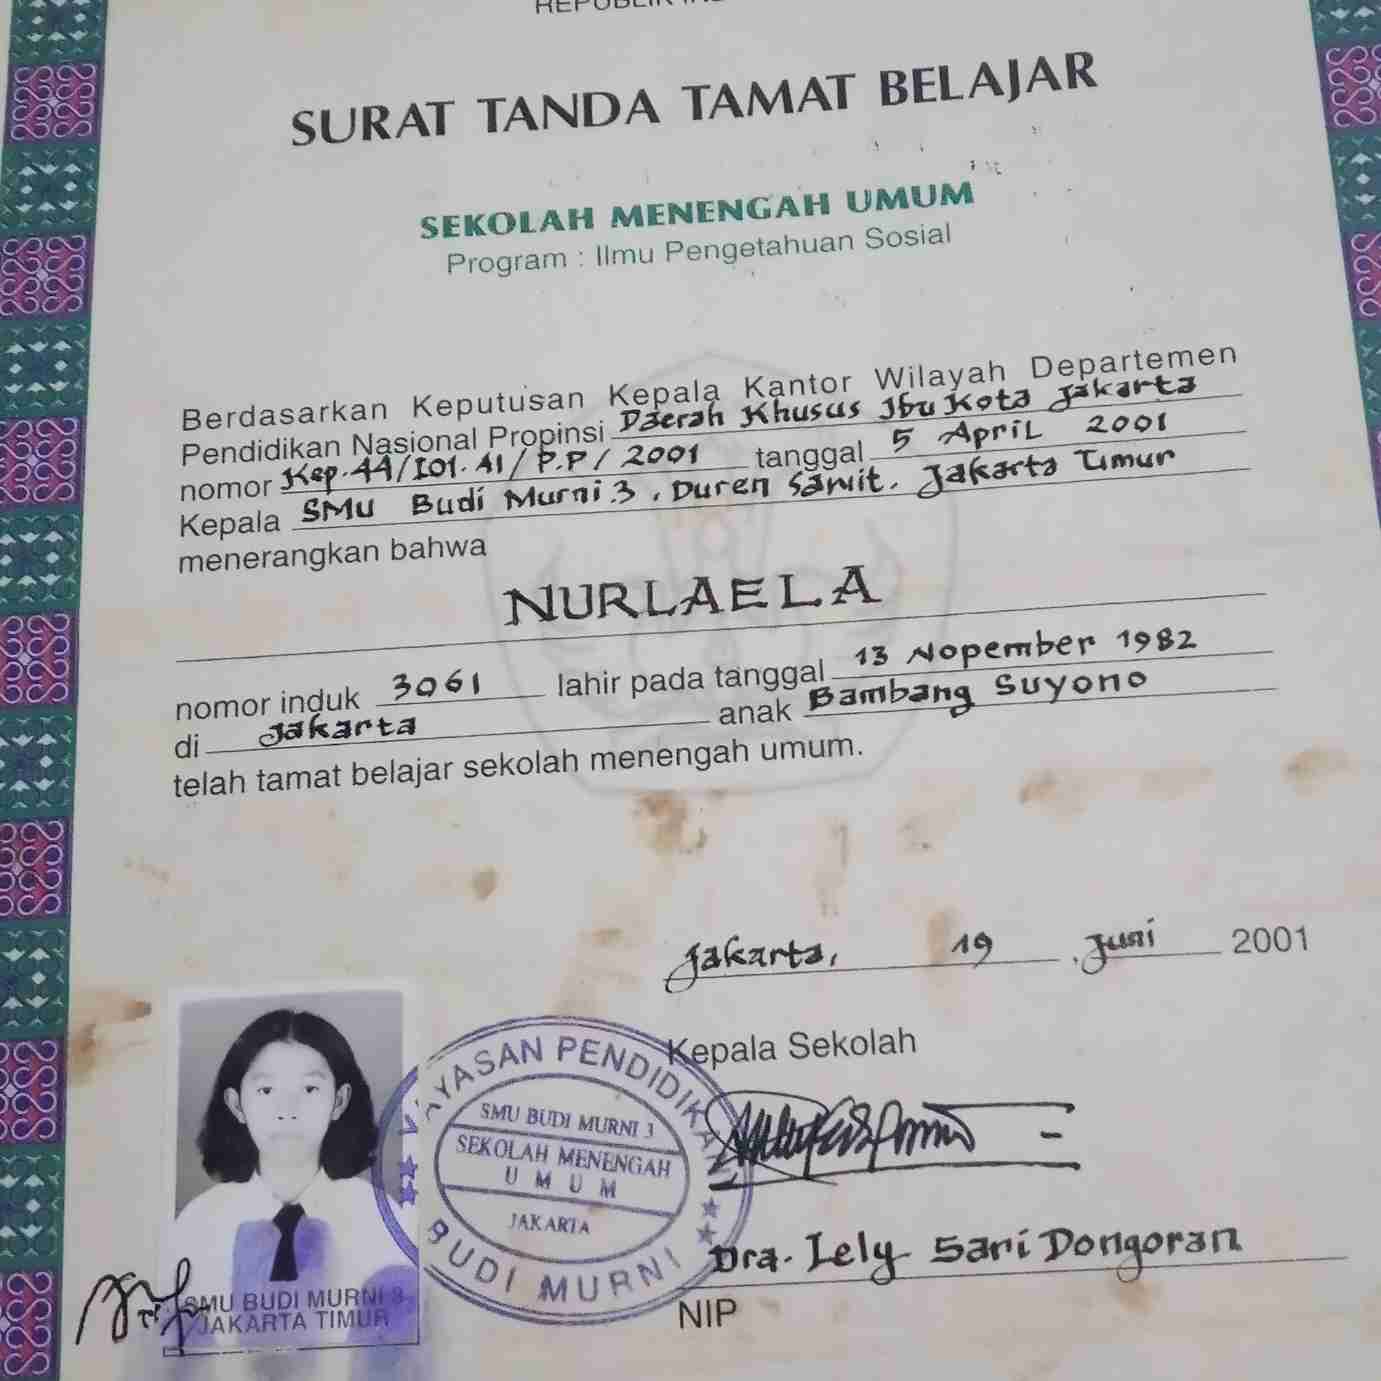 REPUBLIK IN
SURAT TANDA TAMAT BELAJAR
SEKOLAH MENENGAH UMUM
Program : Ilmu Pengetahuan Sosial
Berdasarkan Keputusan Kepala Kantor Wilayah Departemen
Pendidikan Nasional Propinsi Daerah Khusus Ibu Kota Jakarta
nomor Kep.44/I01.A1/P.P/2001 tanggal 5 April 2001
Kepala SMU Budi Murni.3, Duren Sawit, Jakarta Timur
menerangkan bahwa
NURLAELA
nomor induk 3061 lahir pada tanggal 13 Nopember 1982
di Jakarta anak Bambang Suyono
telah tamat belajar sekolah menengah umum.
Jakarta, 19 Juni 2001
Kepala Sekolah
YAYASAN PENDIDIKAN
SMU BUDI MURNI 3
SEKOLAH MENENGAH
UMUM
JAKARTA
BUDI MURNI
Dra. Lely Sari Dongoran
NIP
SMU BUDI MURNI 3
JAKARTA TIMUR